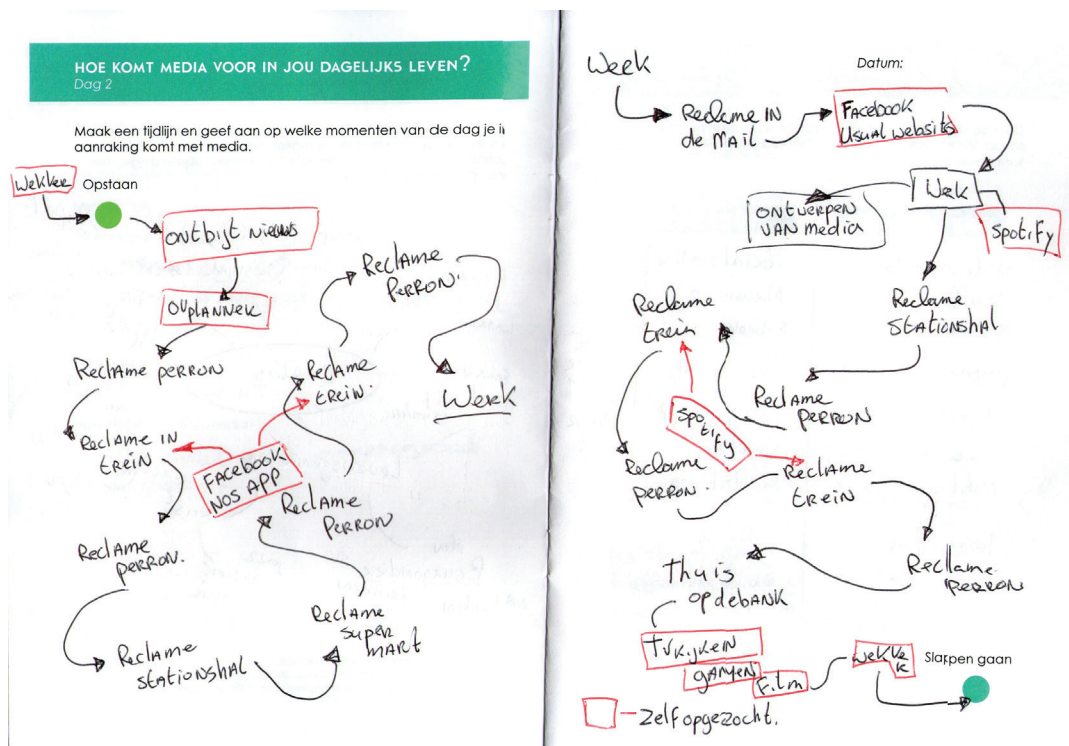 HOE KOMT MEDIA VOOR IN JOU DAGELIJKS LEVEN?
Dag 2
Maak een tijdlijn en geef aan op welke momenten van de dag je i
aanraking komt met media.
Wekker
Opstaan
Ontbijt nieuws
OVplanner
Reclame perron
Reclame in
trein
Facebook
NOS APP
Reclame
perron.
Reclame
stationshal
Reclame
super
mart
Reclame
Perron
Reclame
trein.
Reclame
Perron.
Werk
Werk
Datum:
Reclame in
de mail
Facebook
Usual websits
Werk
Spotify
Ontwerpen
van media
Reclame
Stationshal
Reclame
Perron
Reclame
trein
Spotify
Reclame
perron.
Reclame
trein
Reclame
Perron
Thuis
op de bank
TV kijken
gamen
Film
Wekke
r
Slapen gaan
Zelf opgezocht.